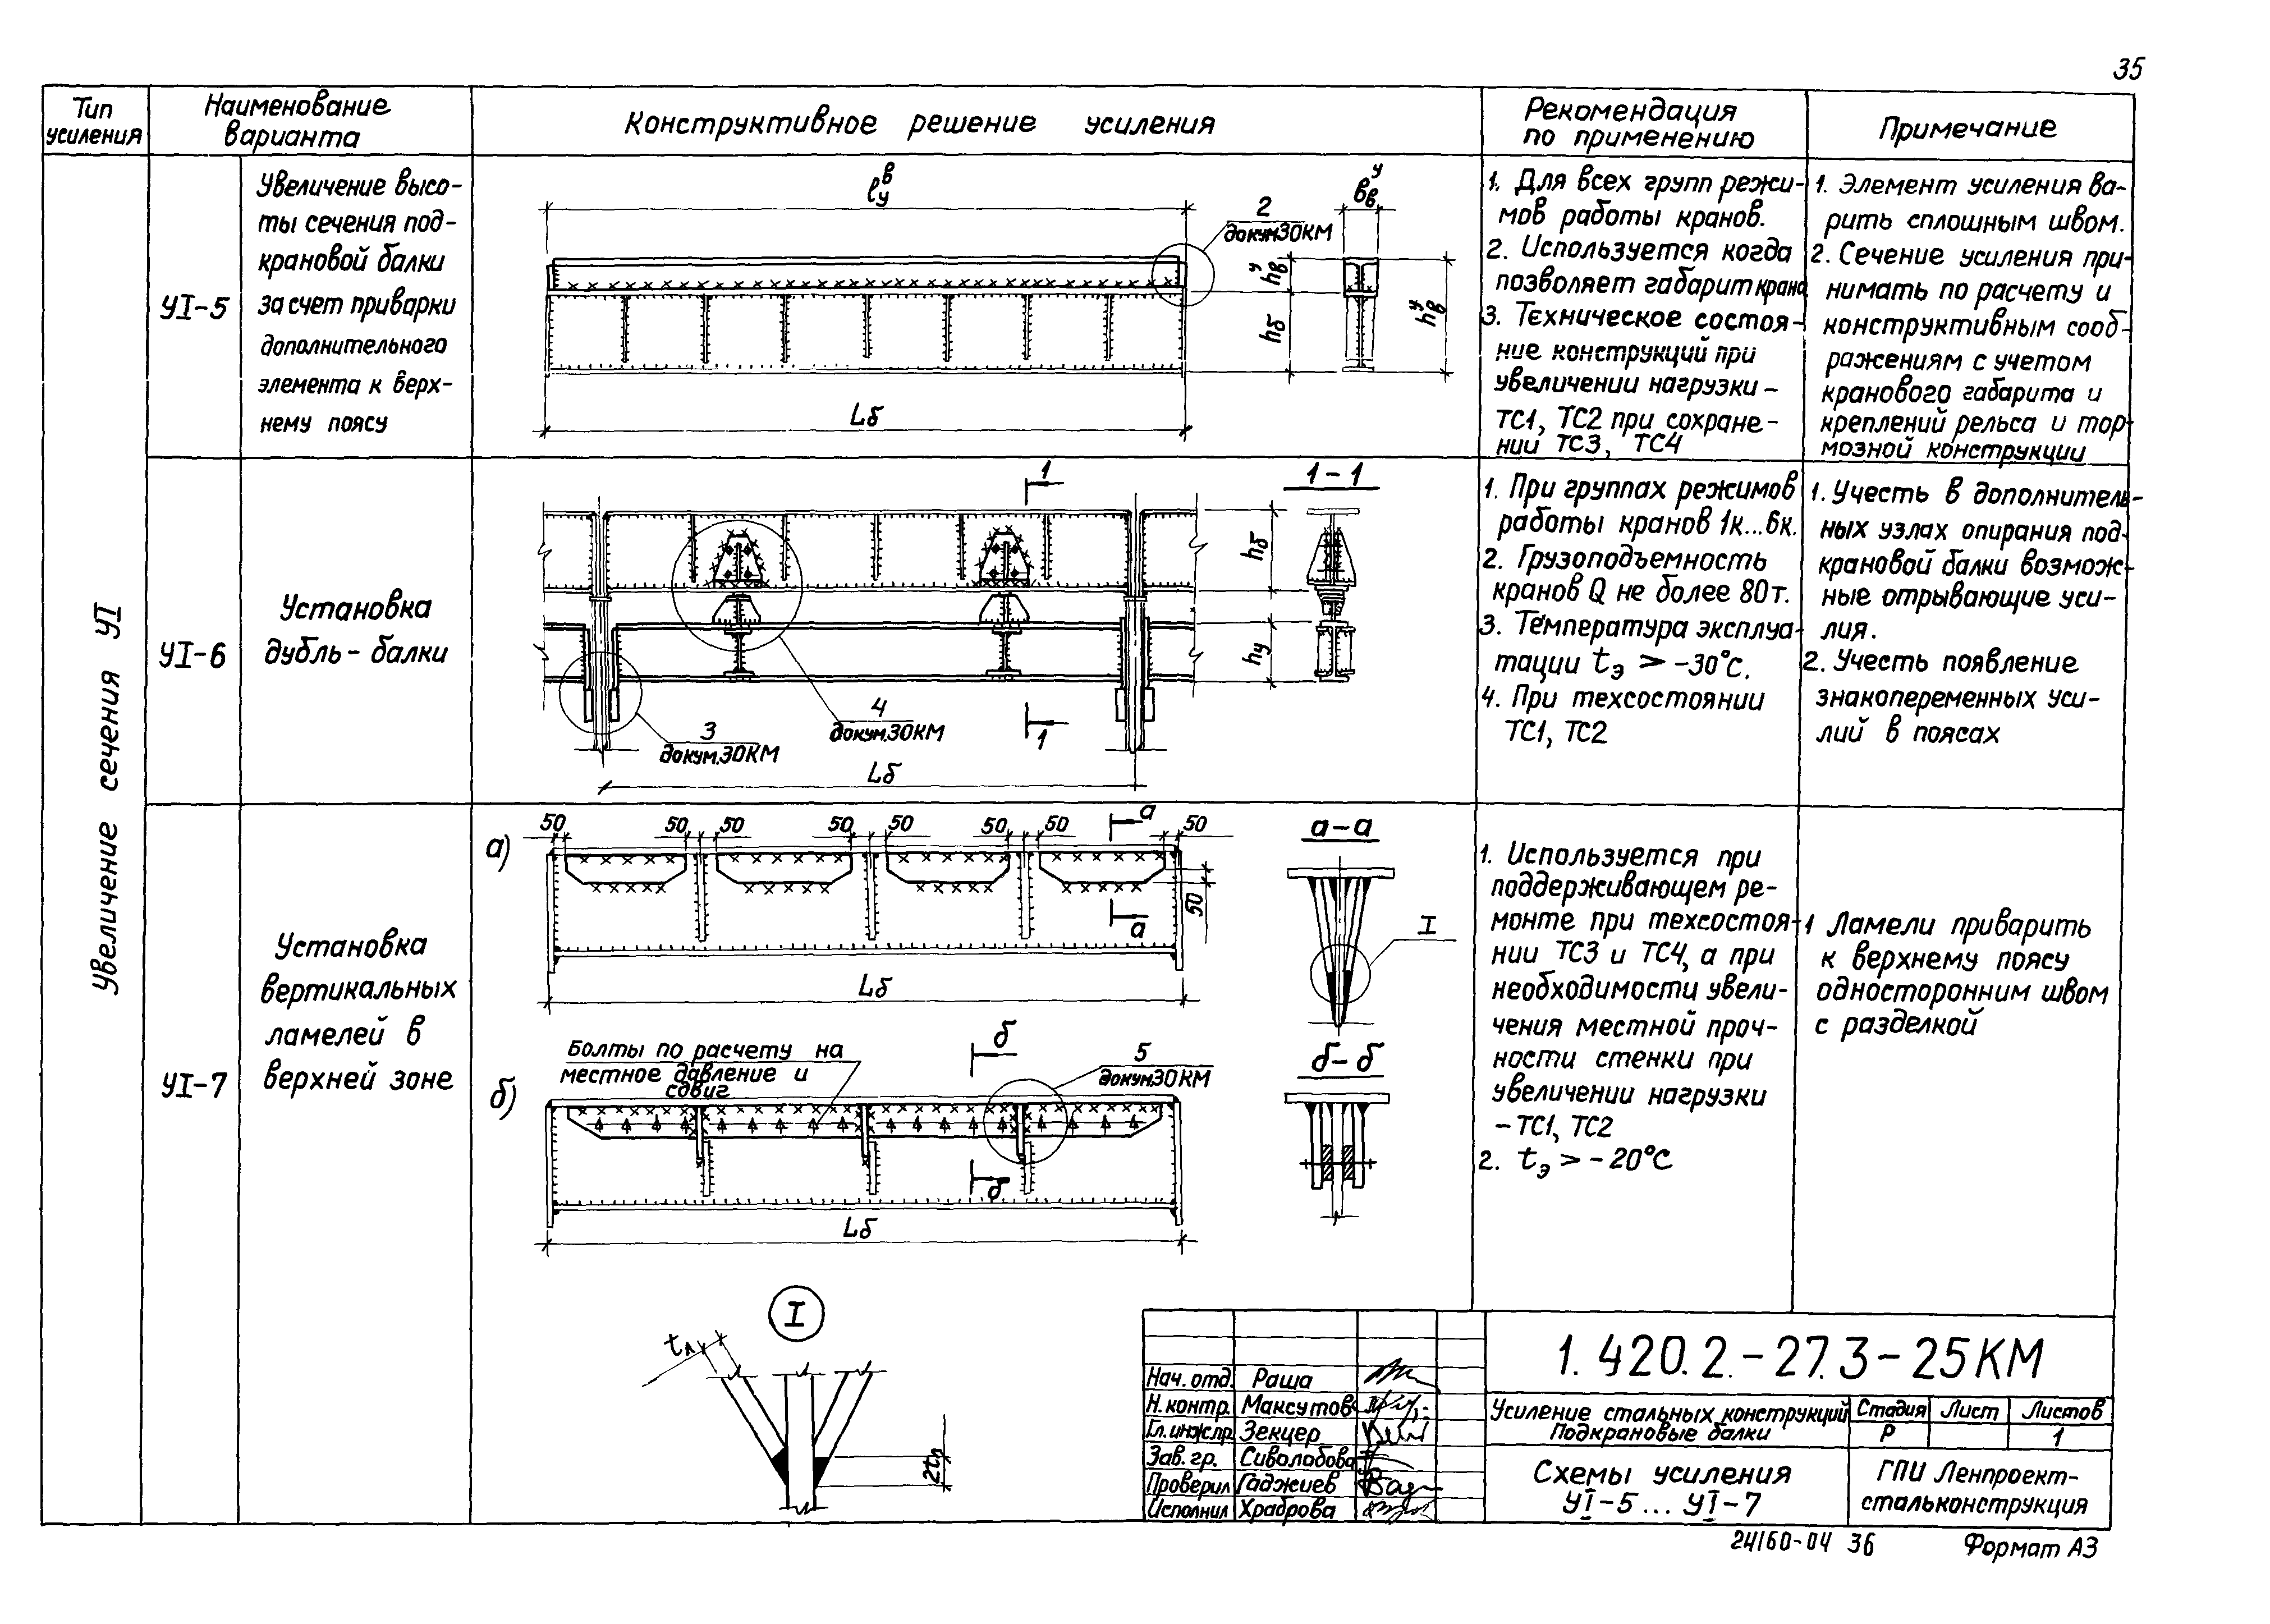 35
Тип
усиления
Наименование
варианта
Конструктивное решение усиления
Рекомендация
по применению
Примечание
Увеличение сечения УI
УI-5
Увеличение высо-
ты сечения под-
крановой балки
за счет приварки
дополнительного
элемента к верх-
нему поясу
ℓву
вув
2
докум.30КМ
hув
hб
hув
Lб
1. Для всех групп режи-
мов работы кранов.
2. Используется когда
позволяет габарит крана
3. Техническое состоя-
ние конструкций при
увеличении нагрузки -
ТС1, ТС2 при сохране-
нии ТС3, ТС4
1. Элемент усиления ва-
рить сплошным швом.
2. Сечение усиления при-
нимать по расчету и
конструктивным сооб-
ражениям с учетом
кранового габарита и
креплений рельса и тор-
мозной конструкции
УI-6
Установка
дубль-балки
1
1-1
hб
hу
3
докум.30КМ
4
докум.30КМ
1
Lб
1. При группах режимов
работы кранов 1к...6к.
2. Грузоподъемность
кранов Q не более 80т.
3. Температура эксплуа-
тации tэ > -30°С.
4. При техсостоянии
ТС1, ТС2
1. Учесть в дополнитель-
ных узлах опирания под-
крановой балки возмож-
ные отрывающие уси-
лия.
2. Учесть появление
знакопеременных уси-
лий в поясах
УI-7
Установка
вертикальных
ламелей в
верхней зоне
а)
50 50 50 50 50 50 50 50
а
а-а
50
а
I
Lб
б)
Болты по расчету на
местное давление и
сдвиг
б
5
докум.30КМ
б-б
б
Lб
I
tл
2tл
1. Используется при
поддерживающем ре-
монте при техсостоя-
нии ТС3 и ТС4, а при
необходимости увели-
чения местной проч-
ности стенки при
увеличении нагрузки
- ТС1, ТС2
2. tэ > -20°С
1 Ламели приварить
к верхнему поясу
односторонним швом
с разделкой
Нач. отд. Раша
Н. контр. Максутов
Гл. инж.пр. Зекцер
Зав. гр. Сиволобова
Проверил Гаджиев
Исполнил Храброва
1.420.2.-27.3-25КМ
Усиление стальных конструкций
Подкрановые балки
Стадия Лист Листов
Р 1
Схемы усиления
УI-5 ... УI-7
ГПИ Ленпроект-
стальконструкция
24160-04 36
Формат А3